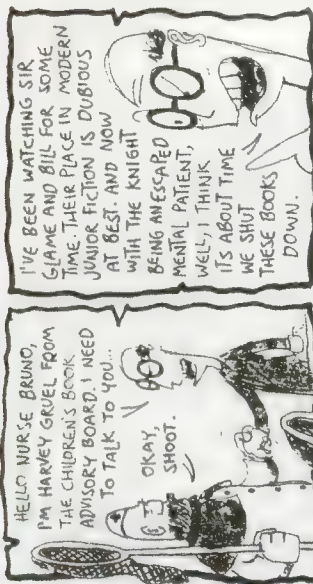 HELLO NURSE BRUNO,
I'M HARVEY GRUEL FROM
THE CHILDREN'S BOOK
ADVISORY BOARD. I NEED
TO TALK TO YOU...
OKAY,
SHOOT.
I'VE BEEN WATCHING SIR
GLAME AND BILL FOR SOME
TIME. THEIR PLACE IN MODERN
JUNIOR FICTION IS DUBIOUS
AT BEST. AND NOW
WITH THE KNIGHT
BEING AN ESCAPED
MENTAL PATIENT,
WELL, I THINK
ITS ABOUT TIME
WE SHUT
THESE BOOKS
DOWN.